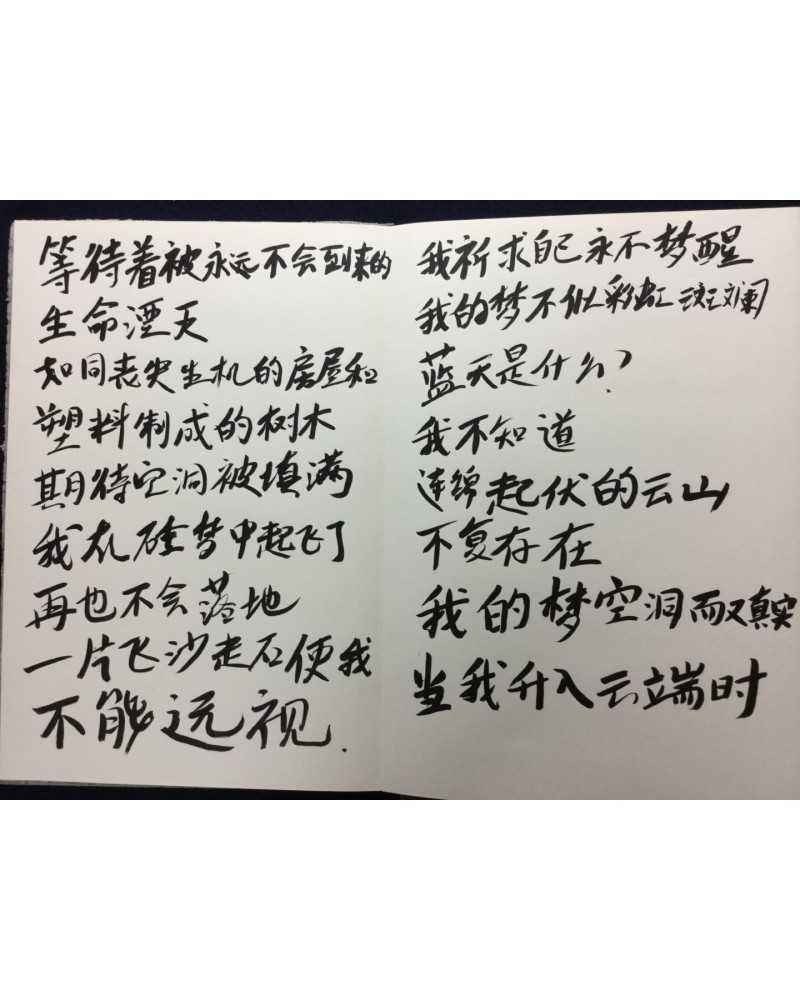 等待着被永远不会到来的
生命湮灭
如同丧失生机的房屋和
塑料制成的树木
期待空洞被填满
我在硅梦中起飞了
再也不会落地
一片飞沙走石便我
不能远视.
我祈求自己永不梦醒
我的梦不似彩虹斑斓
蓝天是什么?
我不知道
连绵起伏的云山
不复存在
我的梦空洞而又真实
当我升入云端时